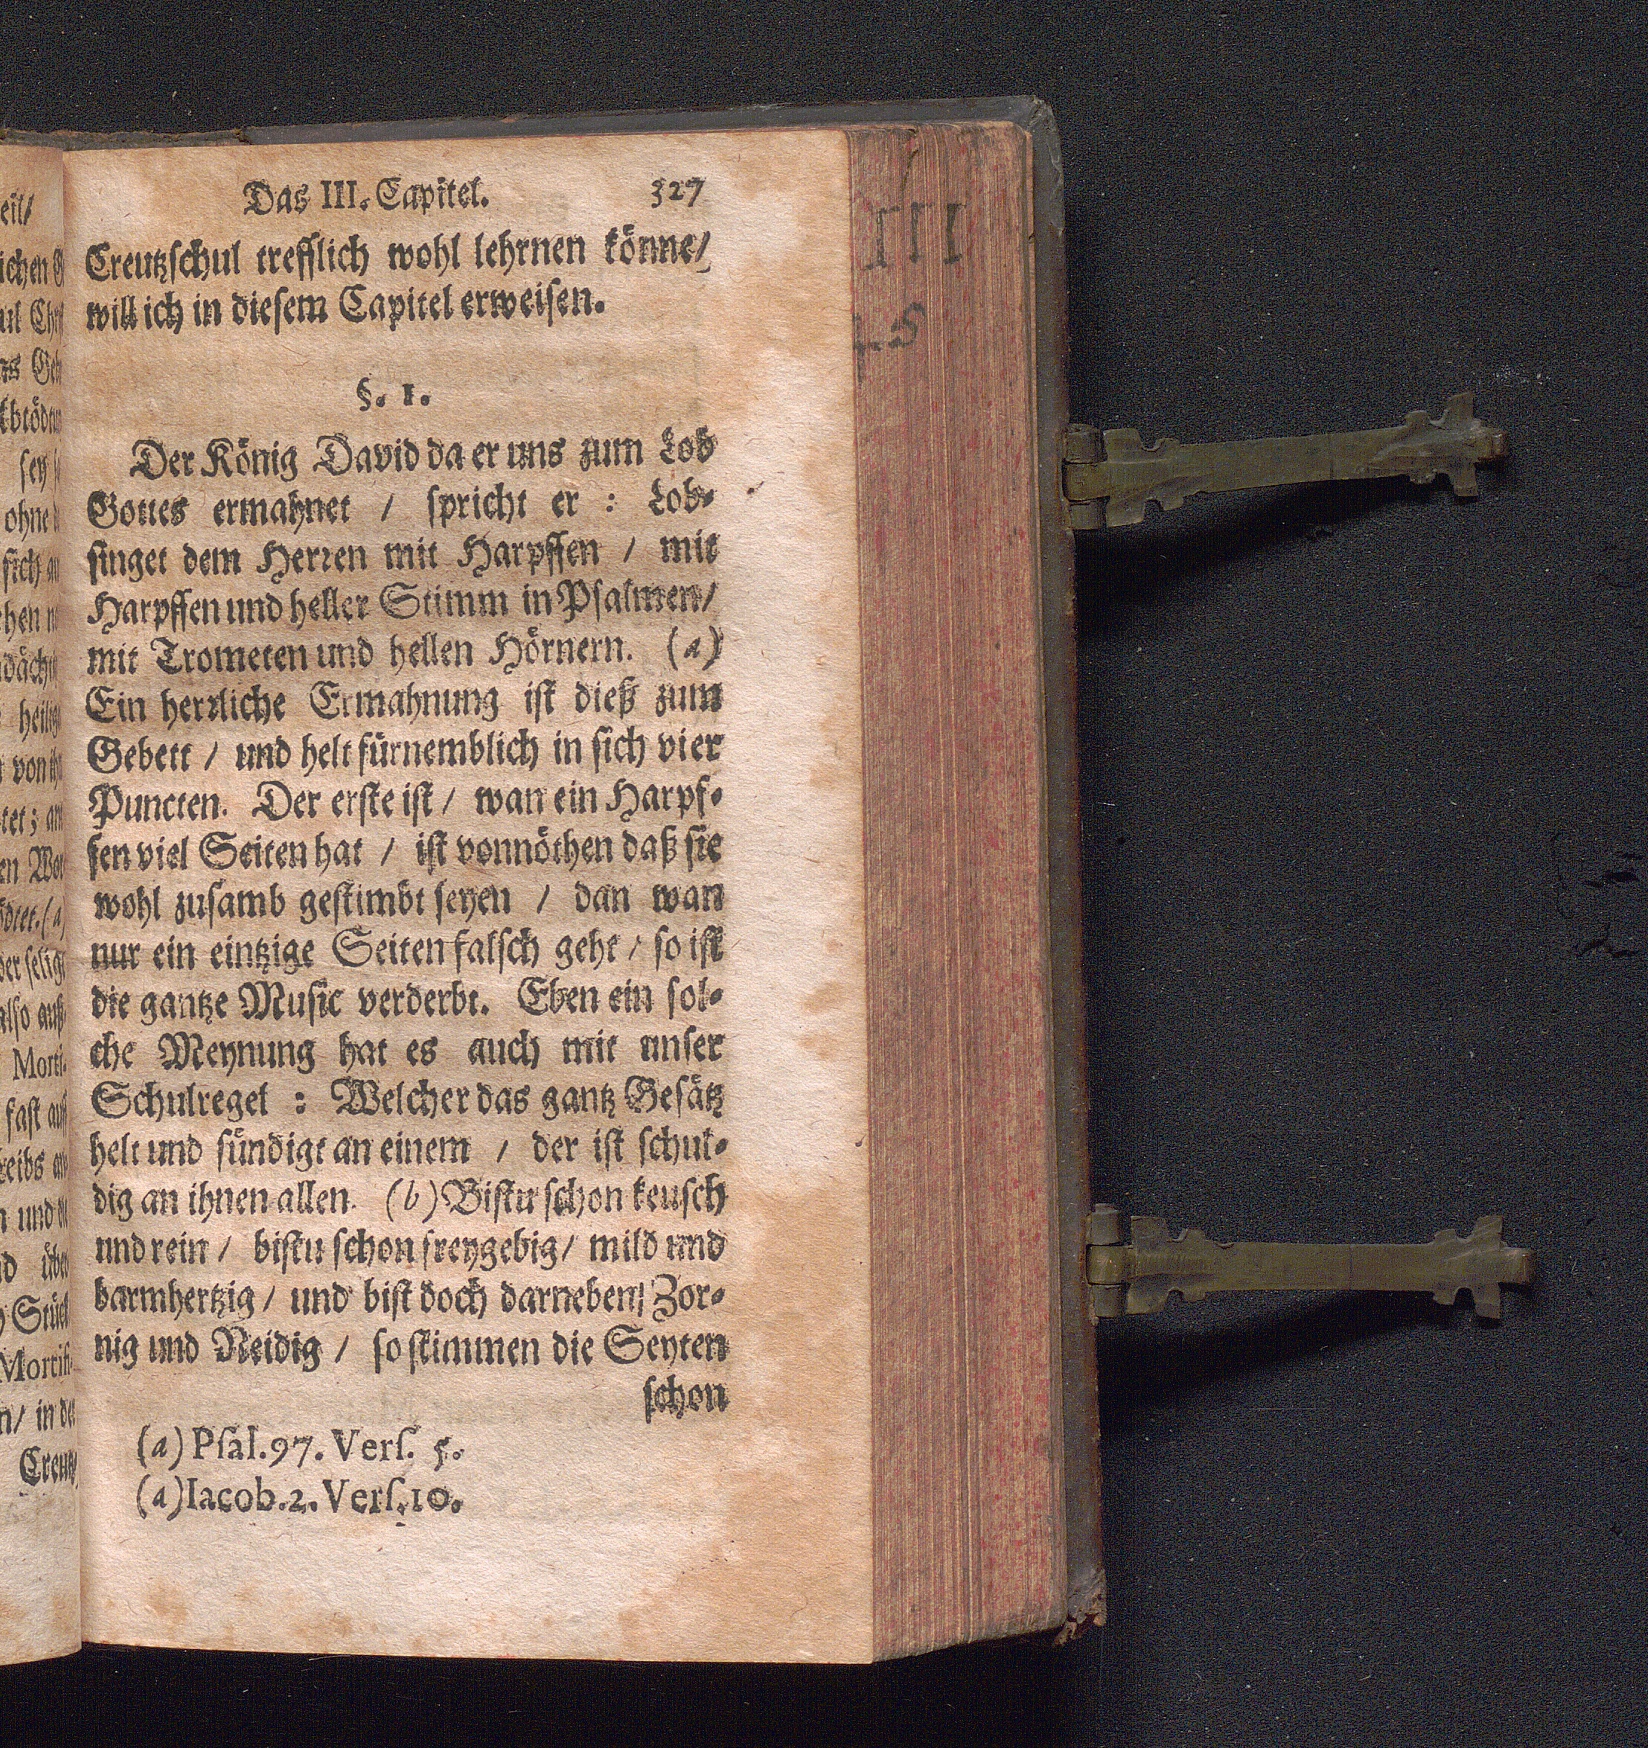 Das III. Capitel. 327
Creutzschul trefflich wohl lehrnen könne/
will ich in diesem Capitel erweisen.
§. 1.
Der König David da er uns zum Lob
Gottes ermahnet / spricht er : Lob-
singet dem Herren mit Harpffen / mit
Harpffen und heller Stimm in Psalmen/
mit Trometen und hellen Hörnern. (a)
Ein herrliche Ermahnung ist dieß zum
Gebett / und helt fürnemblich in sich vier
Puncten. Der erste ist / wan ein Harpf-
fen viel Seiten hat / ist vonnöthen daß sie
wohl zusamb gestimbt seyen / dan wan
nur ein eintzige Seiten falsch geht / so ist
die gantze Music verderbt. Eben ein sol-
che Meynung hat es auch mit unser
Schulregel : Welcher das gantz Gesätz
helt und sündigt an einem / der ist schul-
dig an ihnen allen. (b) Bistu schon keusch
und rein / bistu schon freygebig / mild und
barmhertzig / und bist doch darneben Zor-
nig und Neidig / so stimmen die Seyten
schon
(a) Psal. 97. Vers. 5.
(a) Iacob. 2. Vers. 10.
III